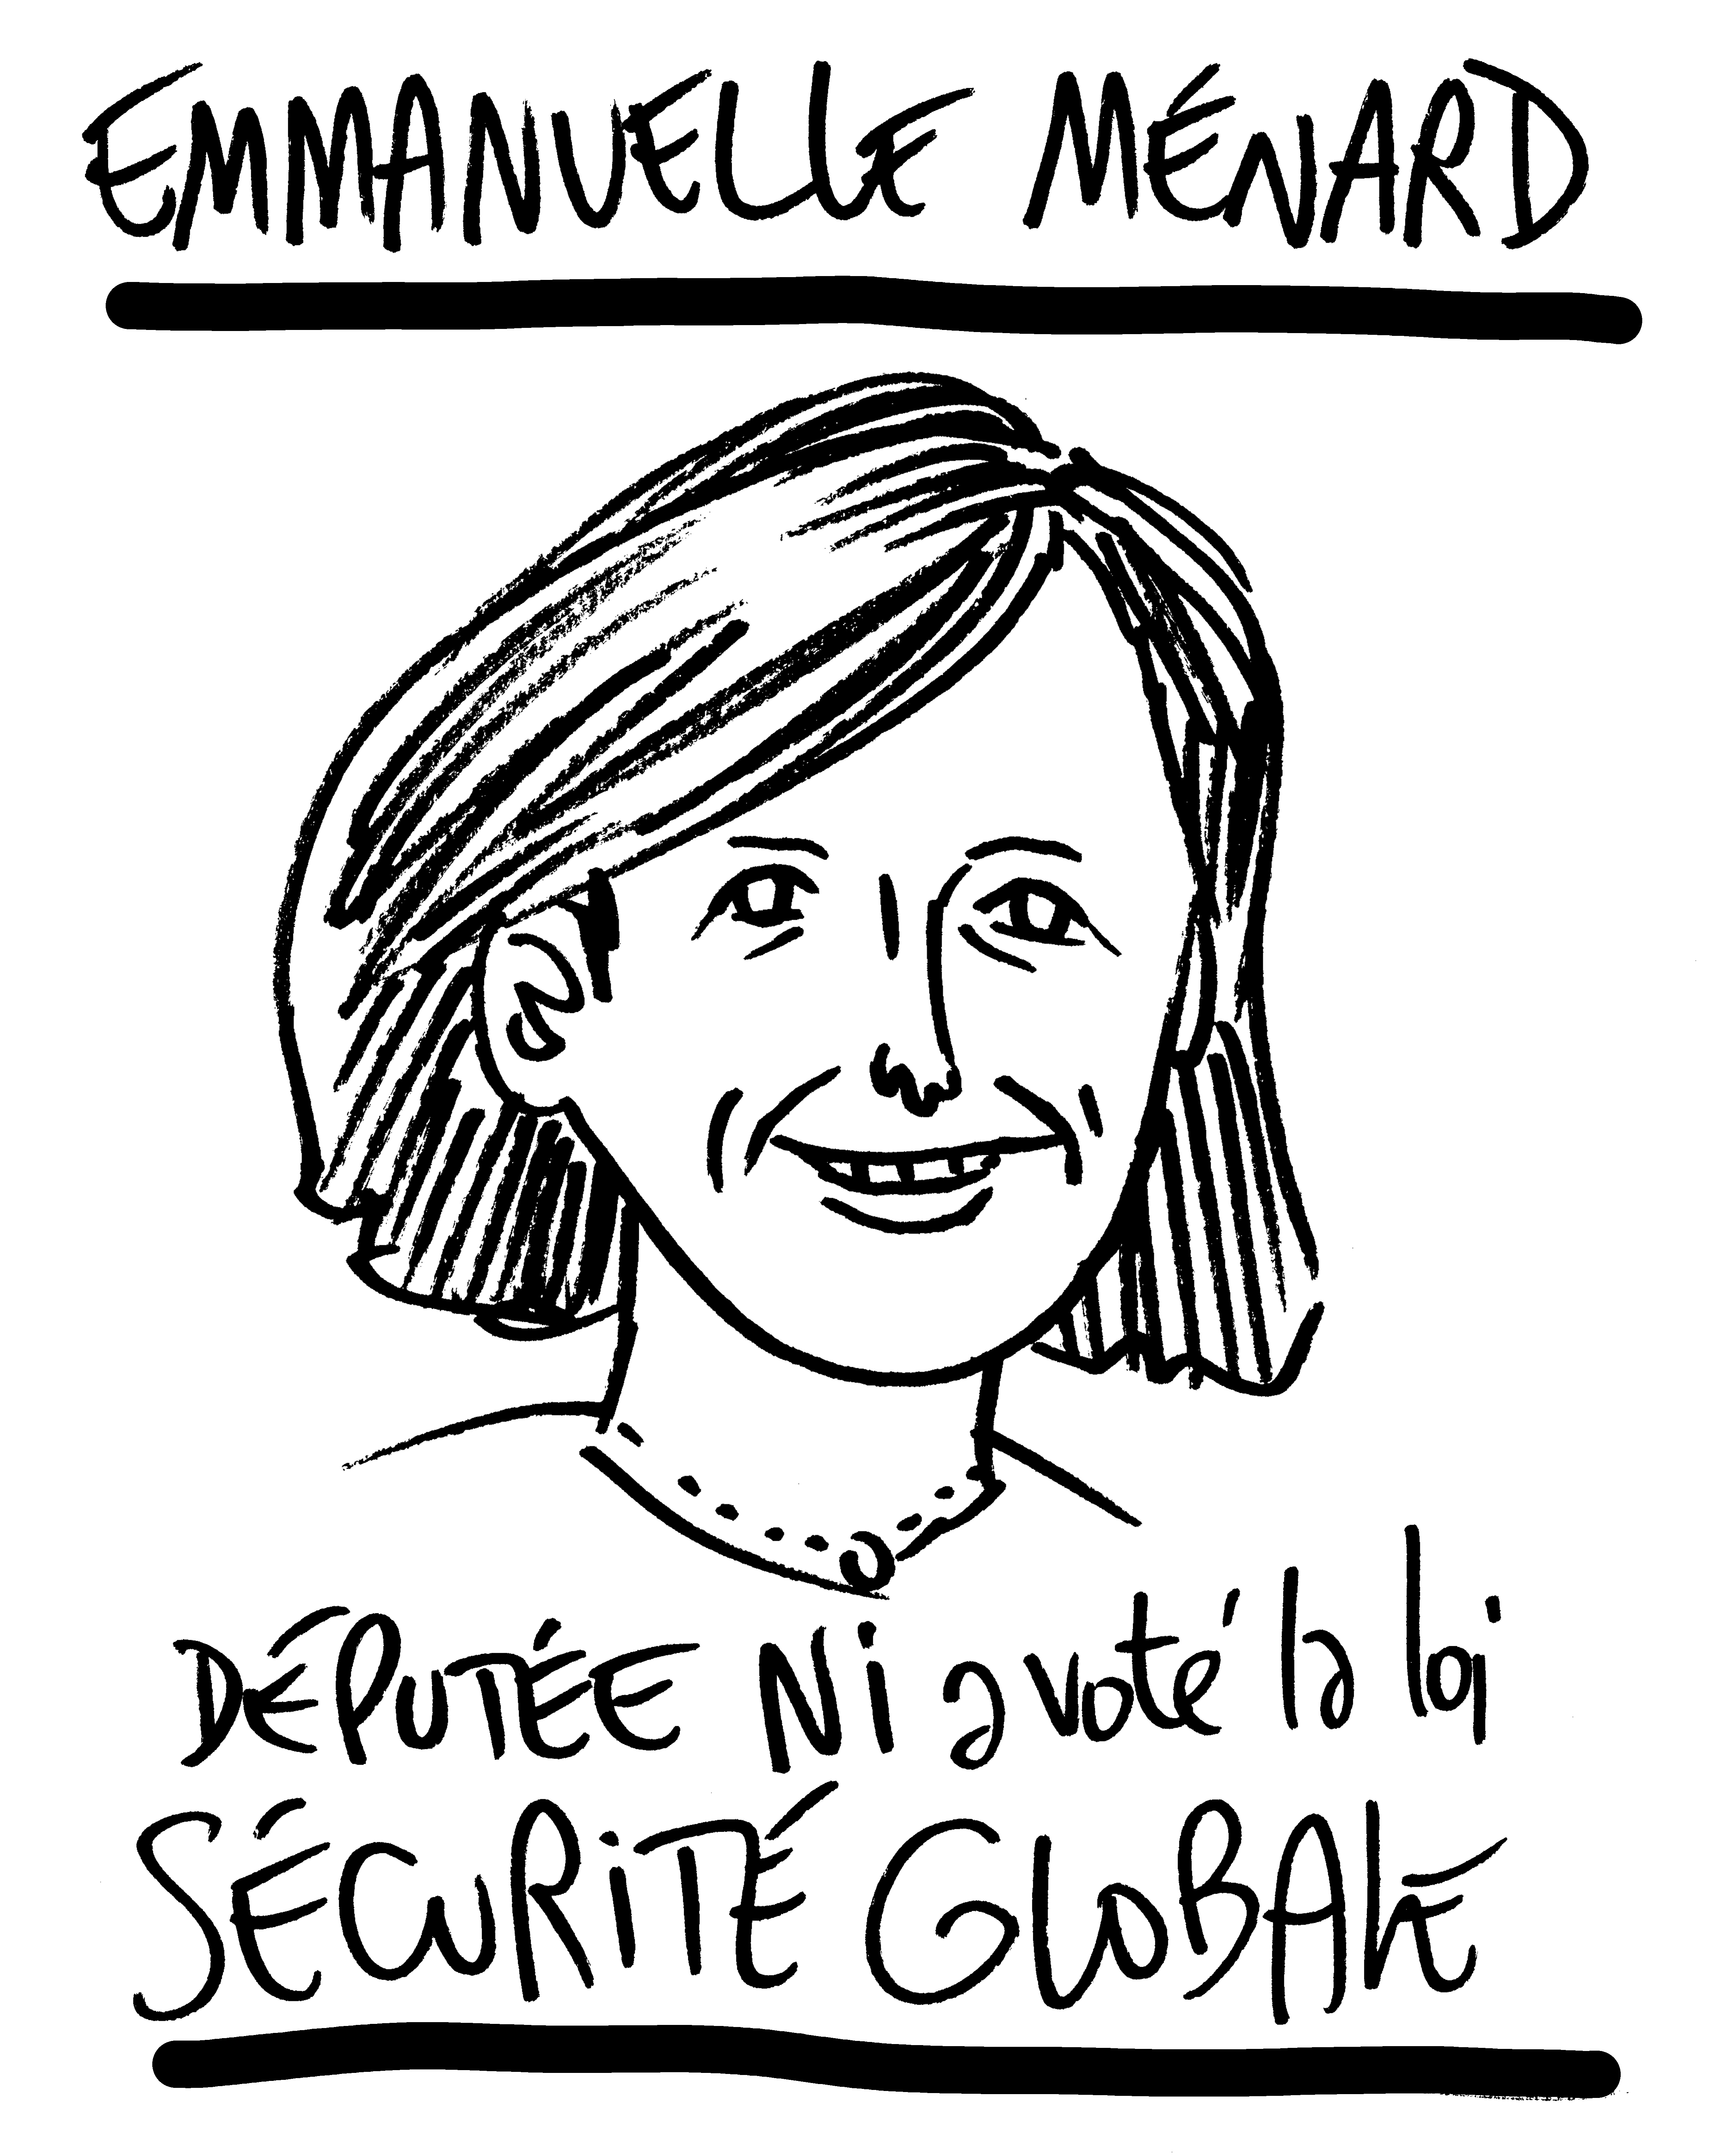 EMMANUELLE MÉNARD
DÉPUTÉE Ni a voté la loi
SÉCURITÉ GLOBALE